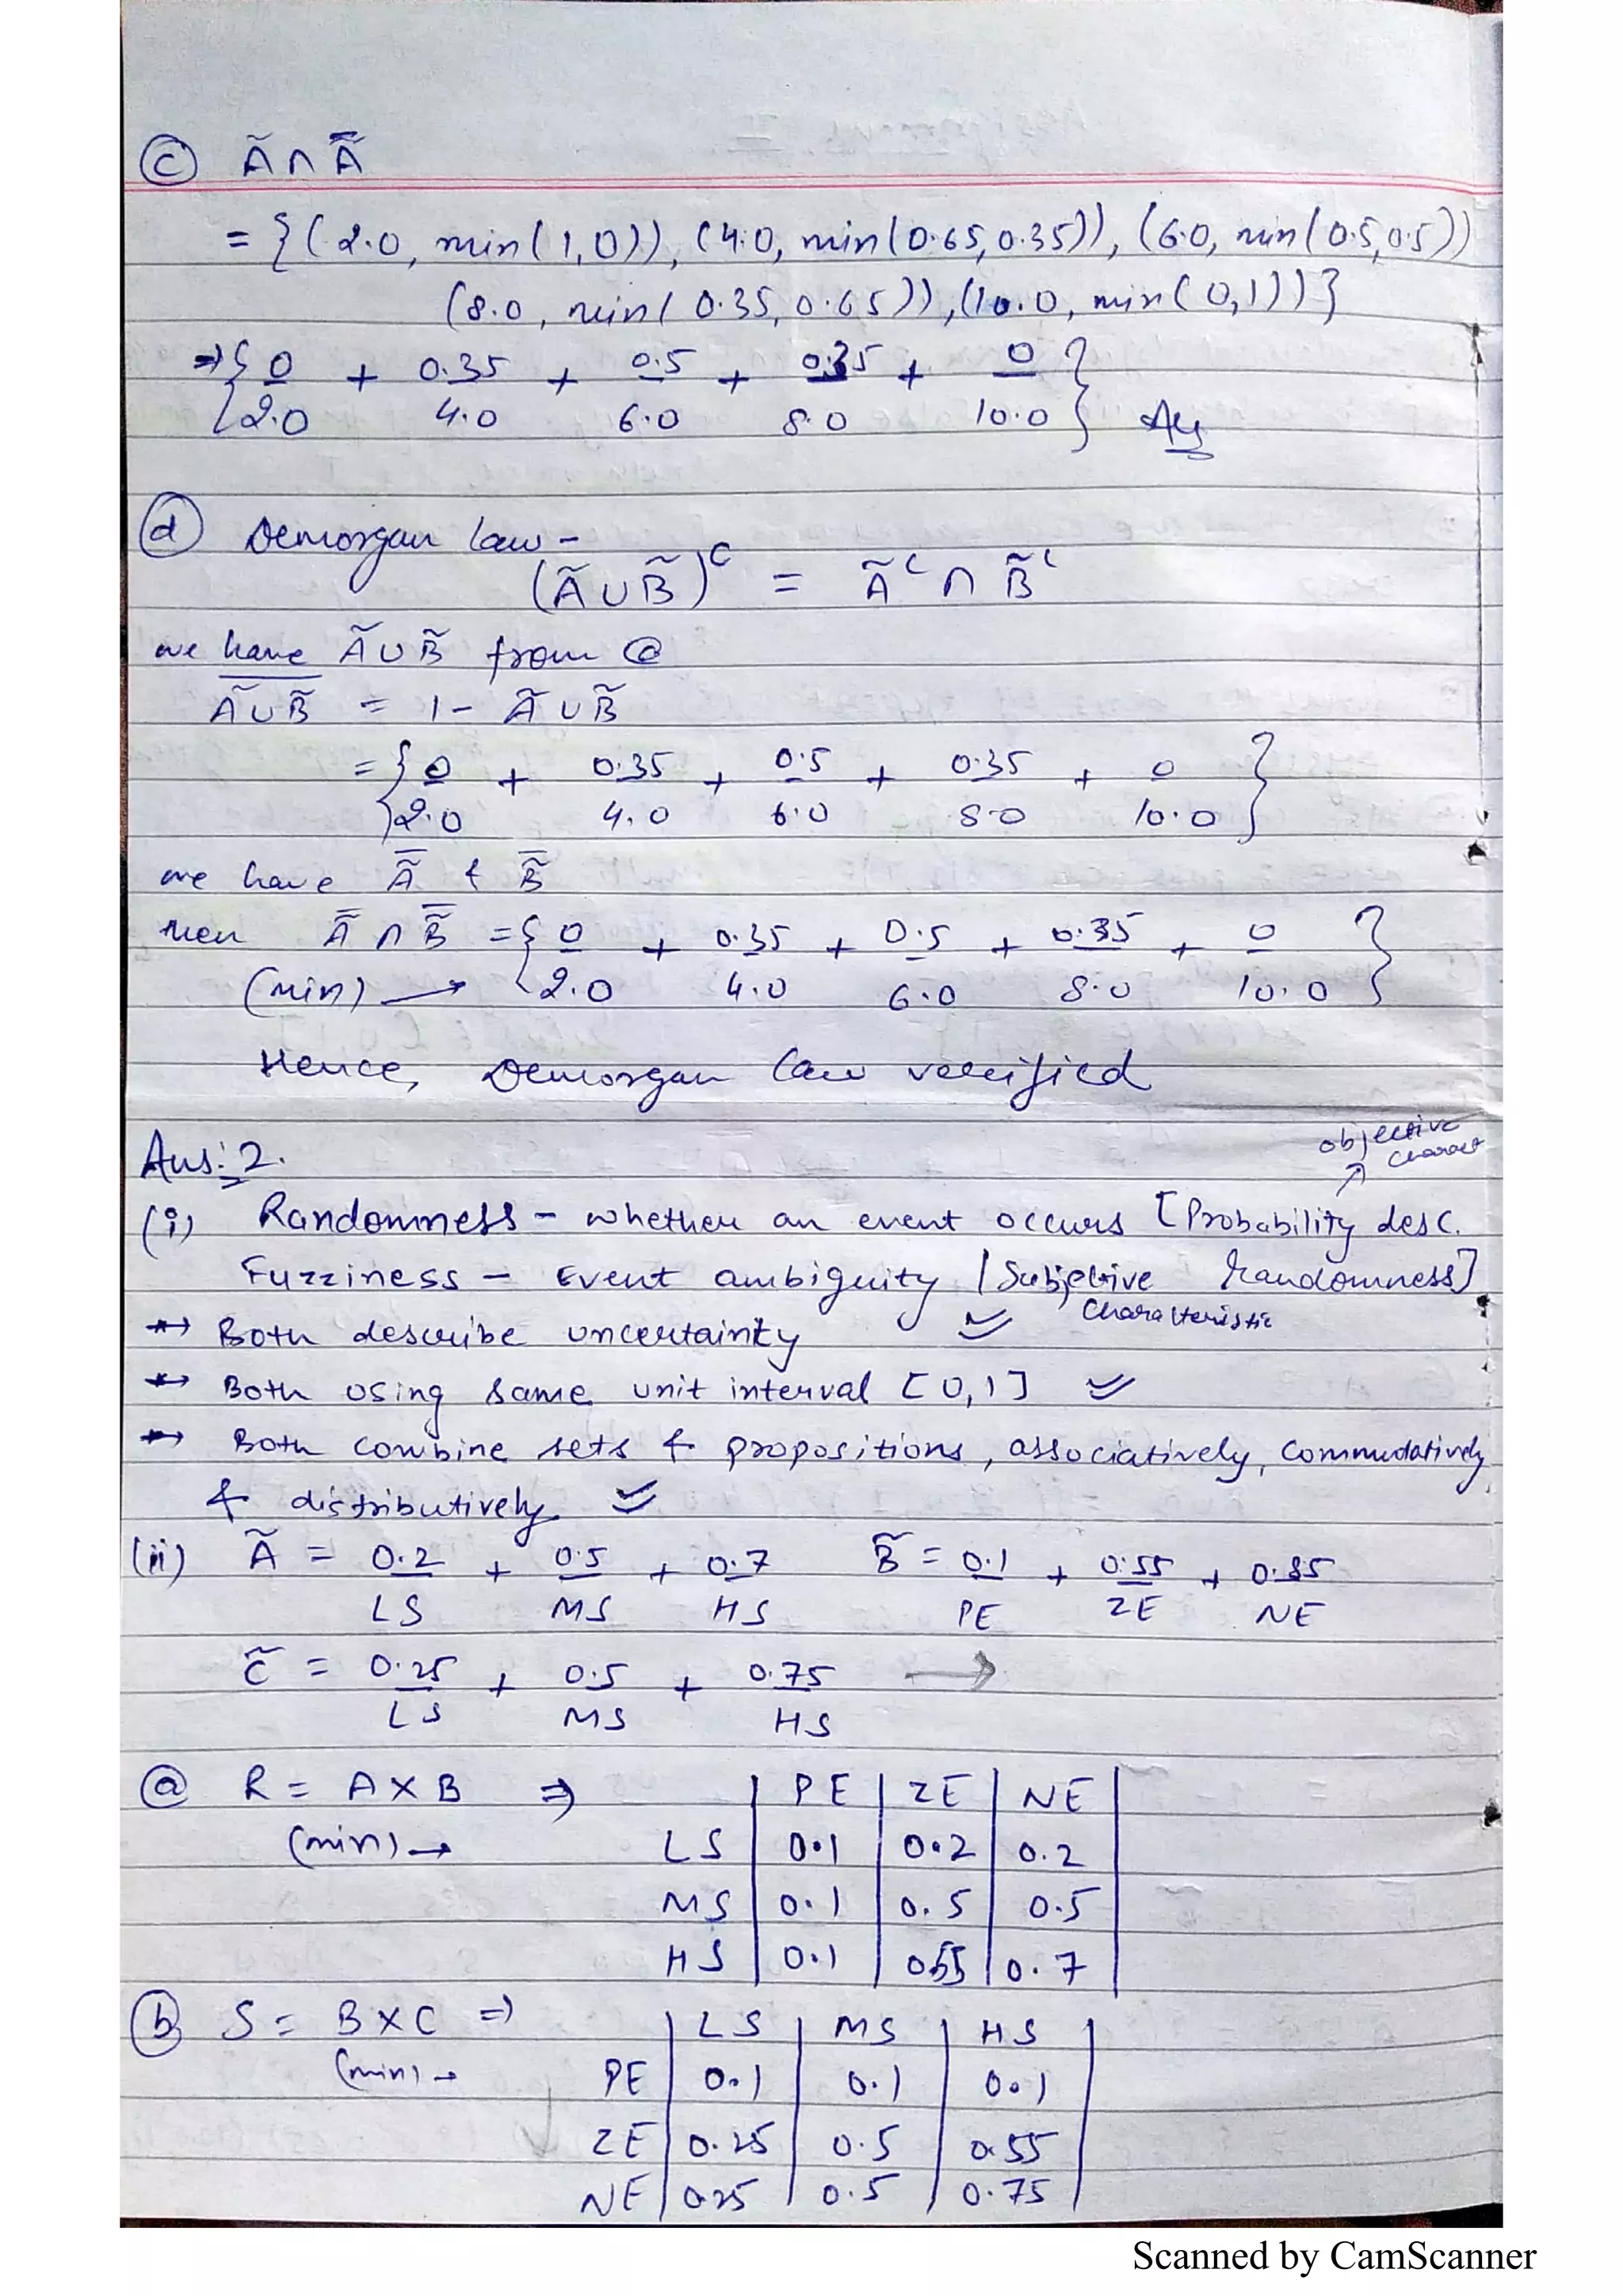 (c) Ã ∩ Ã̅
= {(2.0, min(1,0)), (4.0, min(0.65,0.35)), (6.0, min(0.5,0.5))
(8.0, min(0.35,0.65)), (10.0, min(0,1))}
⇒ { 0/2.0 + 0.35/4.0 + 0.5/6.0 + 0.35/8.0 + 0/10.0 } Ans
(d) Demorgan law -
(Ã ∪ B̃)^C = Ã^C ∩ B̃^C
we have Ã ∪ B̃ from (a)
\overline{Ã ∪ B̃} = 1 - Ã ∪ B̃
= { 0/2.0 + 0.35/4.0 + 0.5/6.0 + 0.35/8.0 + 0/10.0 }
we have Ã̅ & B̃̅
then Ã̅ ∩ B̃̅ = { 0/2.0 + 0.35/4.0 + 0.5/6.0 + 0.35/8.0 + 0/10.0 }
(min) →
Hence, Demorgan law verified
objective
charact
Ans:2.
(i) Randomness - whether an event occurs [Probability desc.
Fuzziness - Event ambiguity | Subjective randomness]
Characteristic
* → Both describe uncertainty
* → Both using same unit interval [0,1]
* → Both combine sets & propositions, associatively, commudatively,
& distributively
(ii) Ã = 0.2/LS + 0.5/MS + 0.7/HS B̃ = 0.1/PE + 0.55/ZE + 0.85/NE
C̃ = 0.25/LS + 0.5/MS + 0.75/HS →
(a) R = A × B ⇒ | PE | ZE | NE |
(min) → LS | 0.1 | 0.2 | 0.2
MS | 0.1 | 0.5 | 0.5
HS | 0.1 | 0.55 | 0.7
(b) S = B × C ⇒ | LS | MS | HS |
(min) → PE | 0.1 | 0.1 | 0.1
ZE | 0.25 | 0.5 | 0.55
NE | 0.25 | 0.5 | 0.75
Scanned by CamScanner